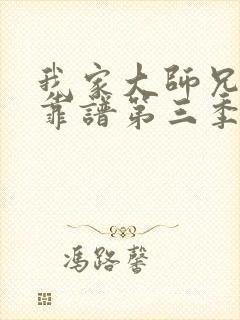 我家大師兄
靠譜第三季
馮路馨